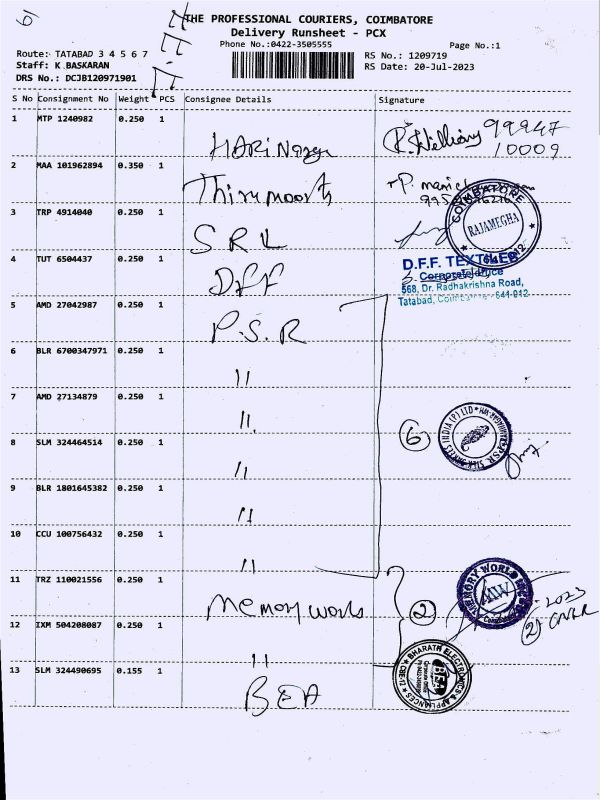 THE PROFESSIONAL COURIERS, COIMBATORE
Delivery Runsheet - PCX
Phone No.:0422-3505555
Page No.:1
Route: TATABAD 3 4 5 6 7
Staff: K.BASKARAN
DRS No.: DCJB120971901
RS No.: 1209719
RS Date: 20-Jul-2023
S No Consignment No Weight PCS Consignee Details Signature
1 MTP 1240982 0.250 1 HARi Nagar 99947 10009
2 MAA 101962894 0.350 1 Thirumoorth
3 TRP 4914040 0.250 1 SRL
COIMBATORE
RAJAMEGHA
4 TUT 6504437 0.250 1 DFF
D.F.F. TEXTILES
Corporate Office
568, Dr. Radhakrishna Road,
Tatabad, Coimbatore - 641 012.
5 AMD 27042987 0.250 1 P.S.R
6 BLR 6700347971 0.250 1 "
7 AMD 27134879 0.250 1 "
8 SLM 324464514 0.250 1 "
6
9 BLR 1801645382 0.250 1 "
10 CCU 100756432 0.250 1 "
11 TRZ 110021556 0.250 1 Memory world
2
MEMORY WORLD
MW
2023
12 IXM 504208087 0.250 1 "
13 SLM 324490695 0.155 1 BEA
BHARATH ELECTRONICS & APPLIANCES
CBE-12
BEA